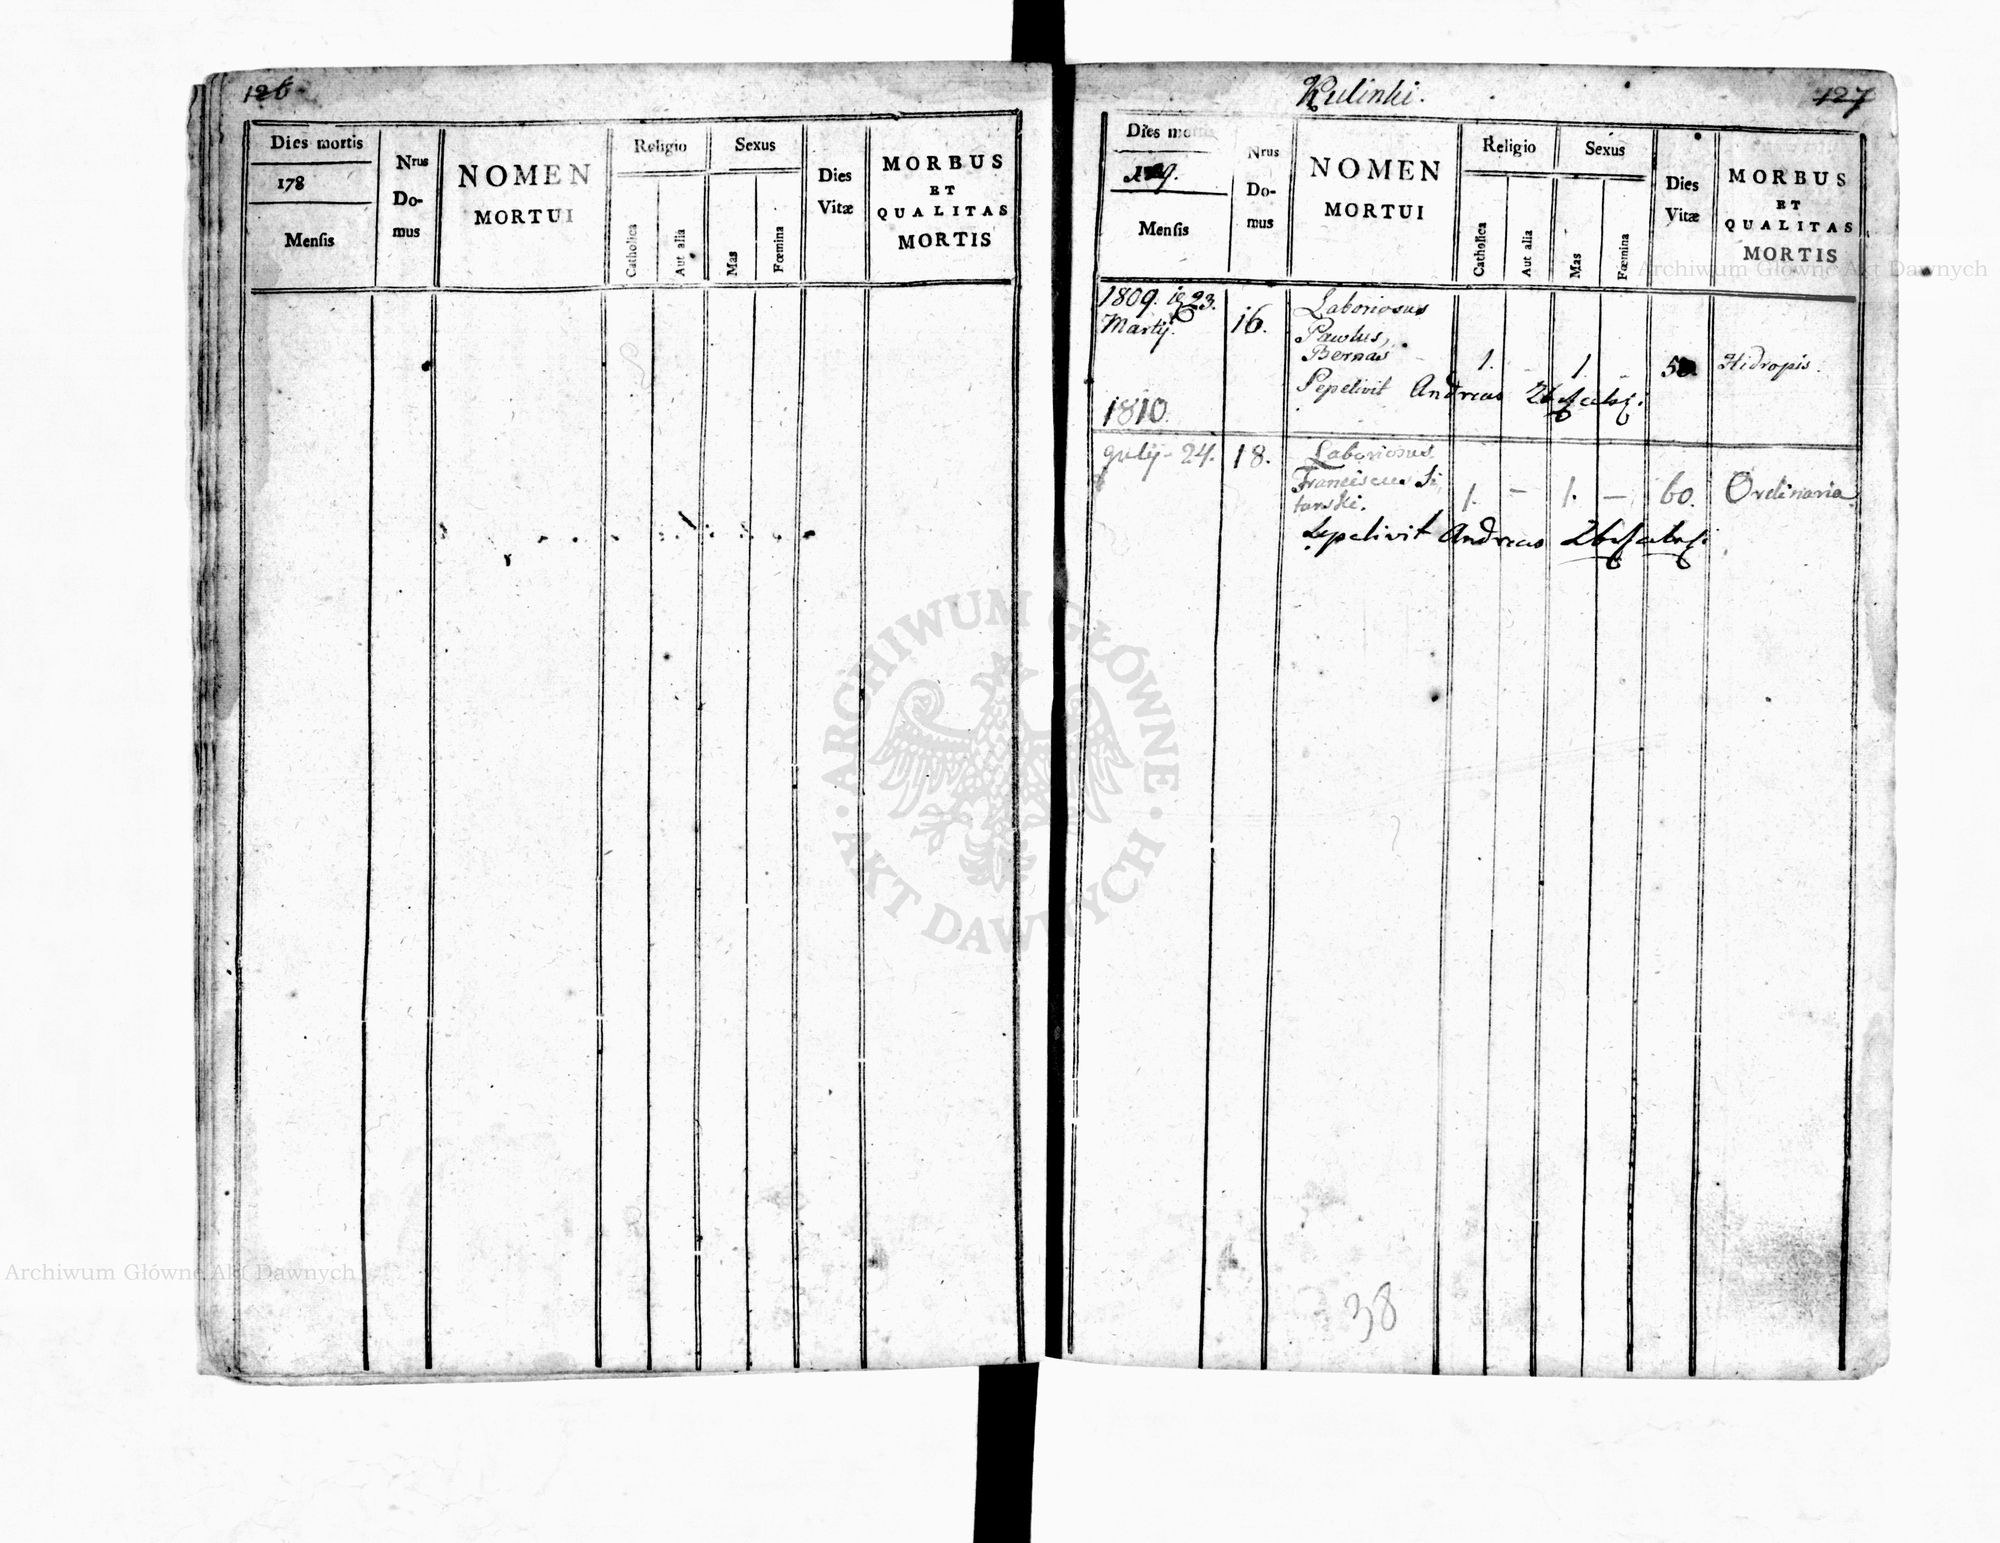 126
Dies mortis
178
Mensis
Nrus
Do-
mus
NOMEN
MORTUI
Religio
Catholica
Aut alia
Sexus
Mas
Fœmina
Dies
Vitæ
MORBUS
ET
QUALITAS
MORTIS
Kulinki.
127
Dies mortis
Mensis
Nrus
Do-
mus
NOMEN
MORTUI
Religio
Catholica
Aut alia
Sexus
Mas
Fœmina
Dies
Vitæ
MORBUS
ET
QUALITAS
MORTIS
1809. 23. 16. Laboriosus
Martij. Pawlus,
Bernas 1. - 1. - Hidropis.
Sepelivit Andreas
1810.
Julij - 24. 18. Laboriosus
Franciscus Si
tarski. 1. - 1. - 60. Ordinaria
Sepelivit Andreas
38
ARCHIWUM GŁÓWNE
AKT DAWNYCH
Archiwum Główne Akt Dawnych
Archiwum Główne Akt Dawnych